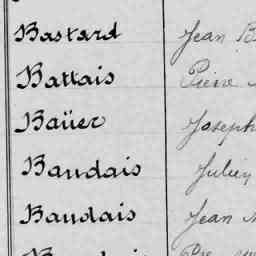 Bastard Jean B
Battais Pierre
Baüer Joseph
Baudais Julien
Baudais Jean